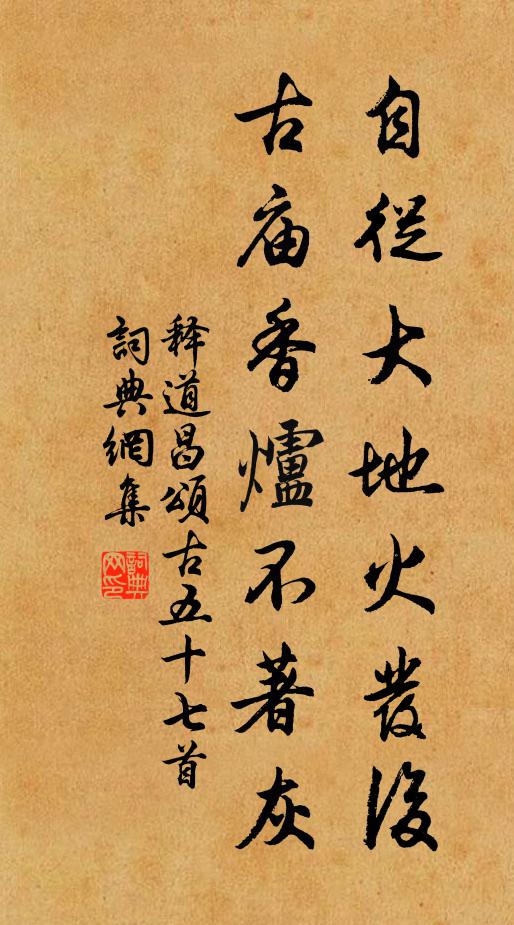 自從大地火發後
古庙香爐不著灰
释道昌頌古五十七首
詞典網集
詞典网印